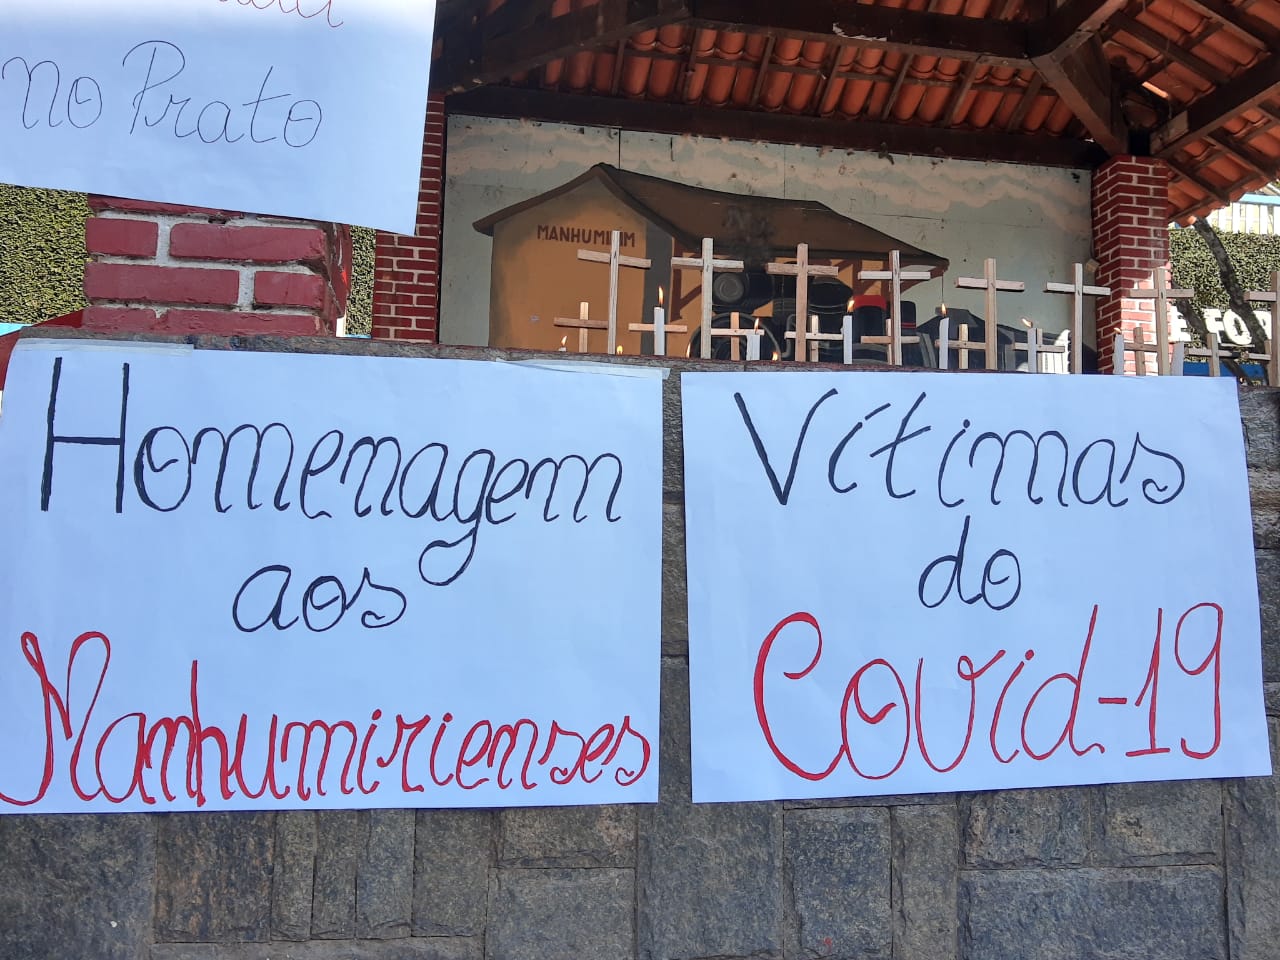 no Prato
MANHUMIRIM
Homenagem
aos
Manhumirienses
Vítimas
do
Covid-19